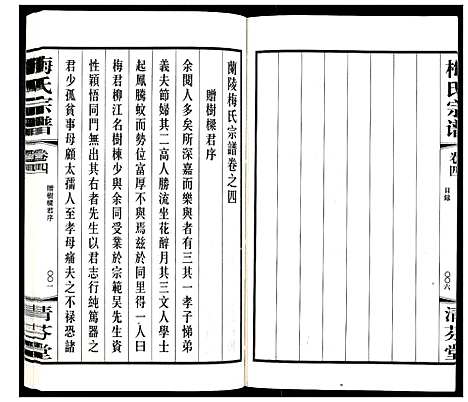 梅氏宗譜
卷四
目錄
〇〇六
清芬堂
蘭陵梅氏宗譜卷之四
贈樹樑君序
余閱人多矣所深嘉而樂與者有三其一孝子悌弟
義夫節婦其二高人勝流坐花醉月其三文人學士
起鳳騰蛟而勢位富厚不與焉茲於同里得一人曰
梅君柳江名樹棟少與余同受業於宗範吳先生資
性穎悟同門無出其右者先生以君志行純篤器之
君少孤貧事母顧太孺人至孝母痛夫之不祿恐諸
梅氏宗譜
卷四
贈樹樑君序
〇〇一
清芬堂